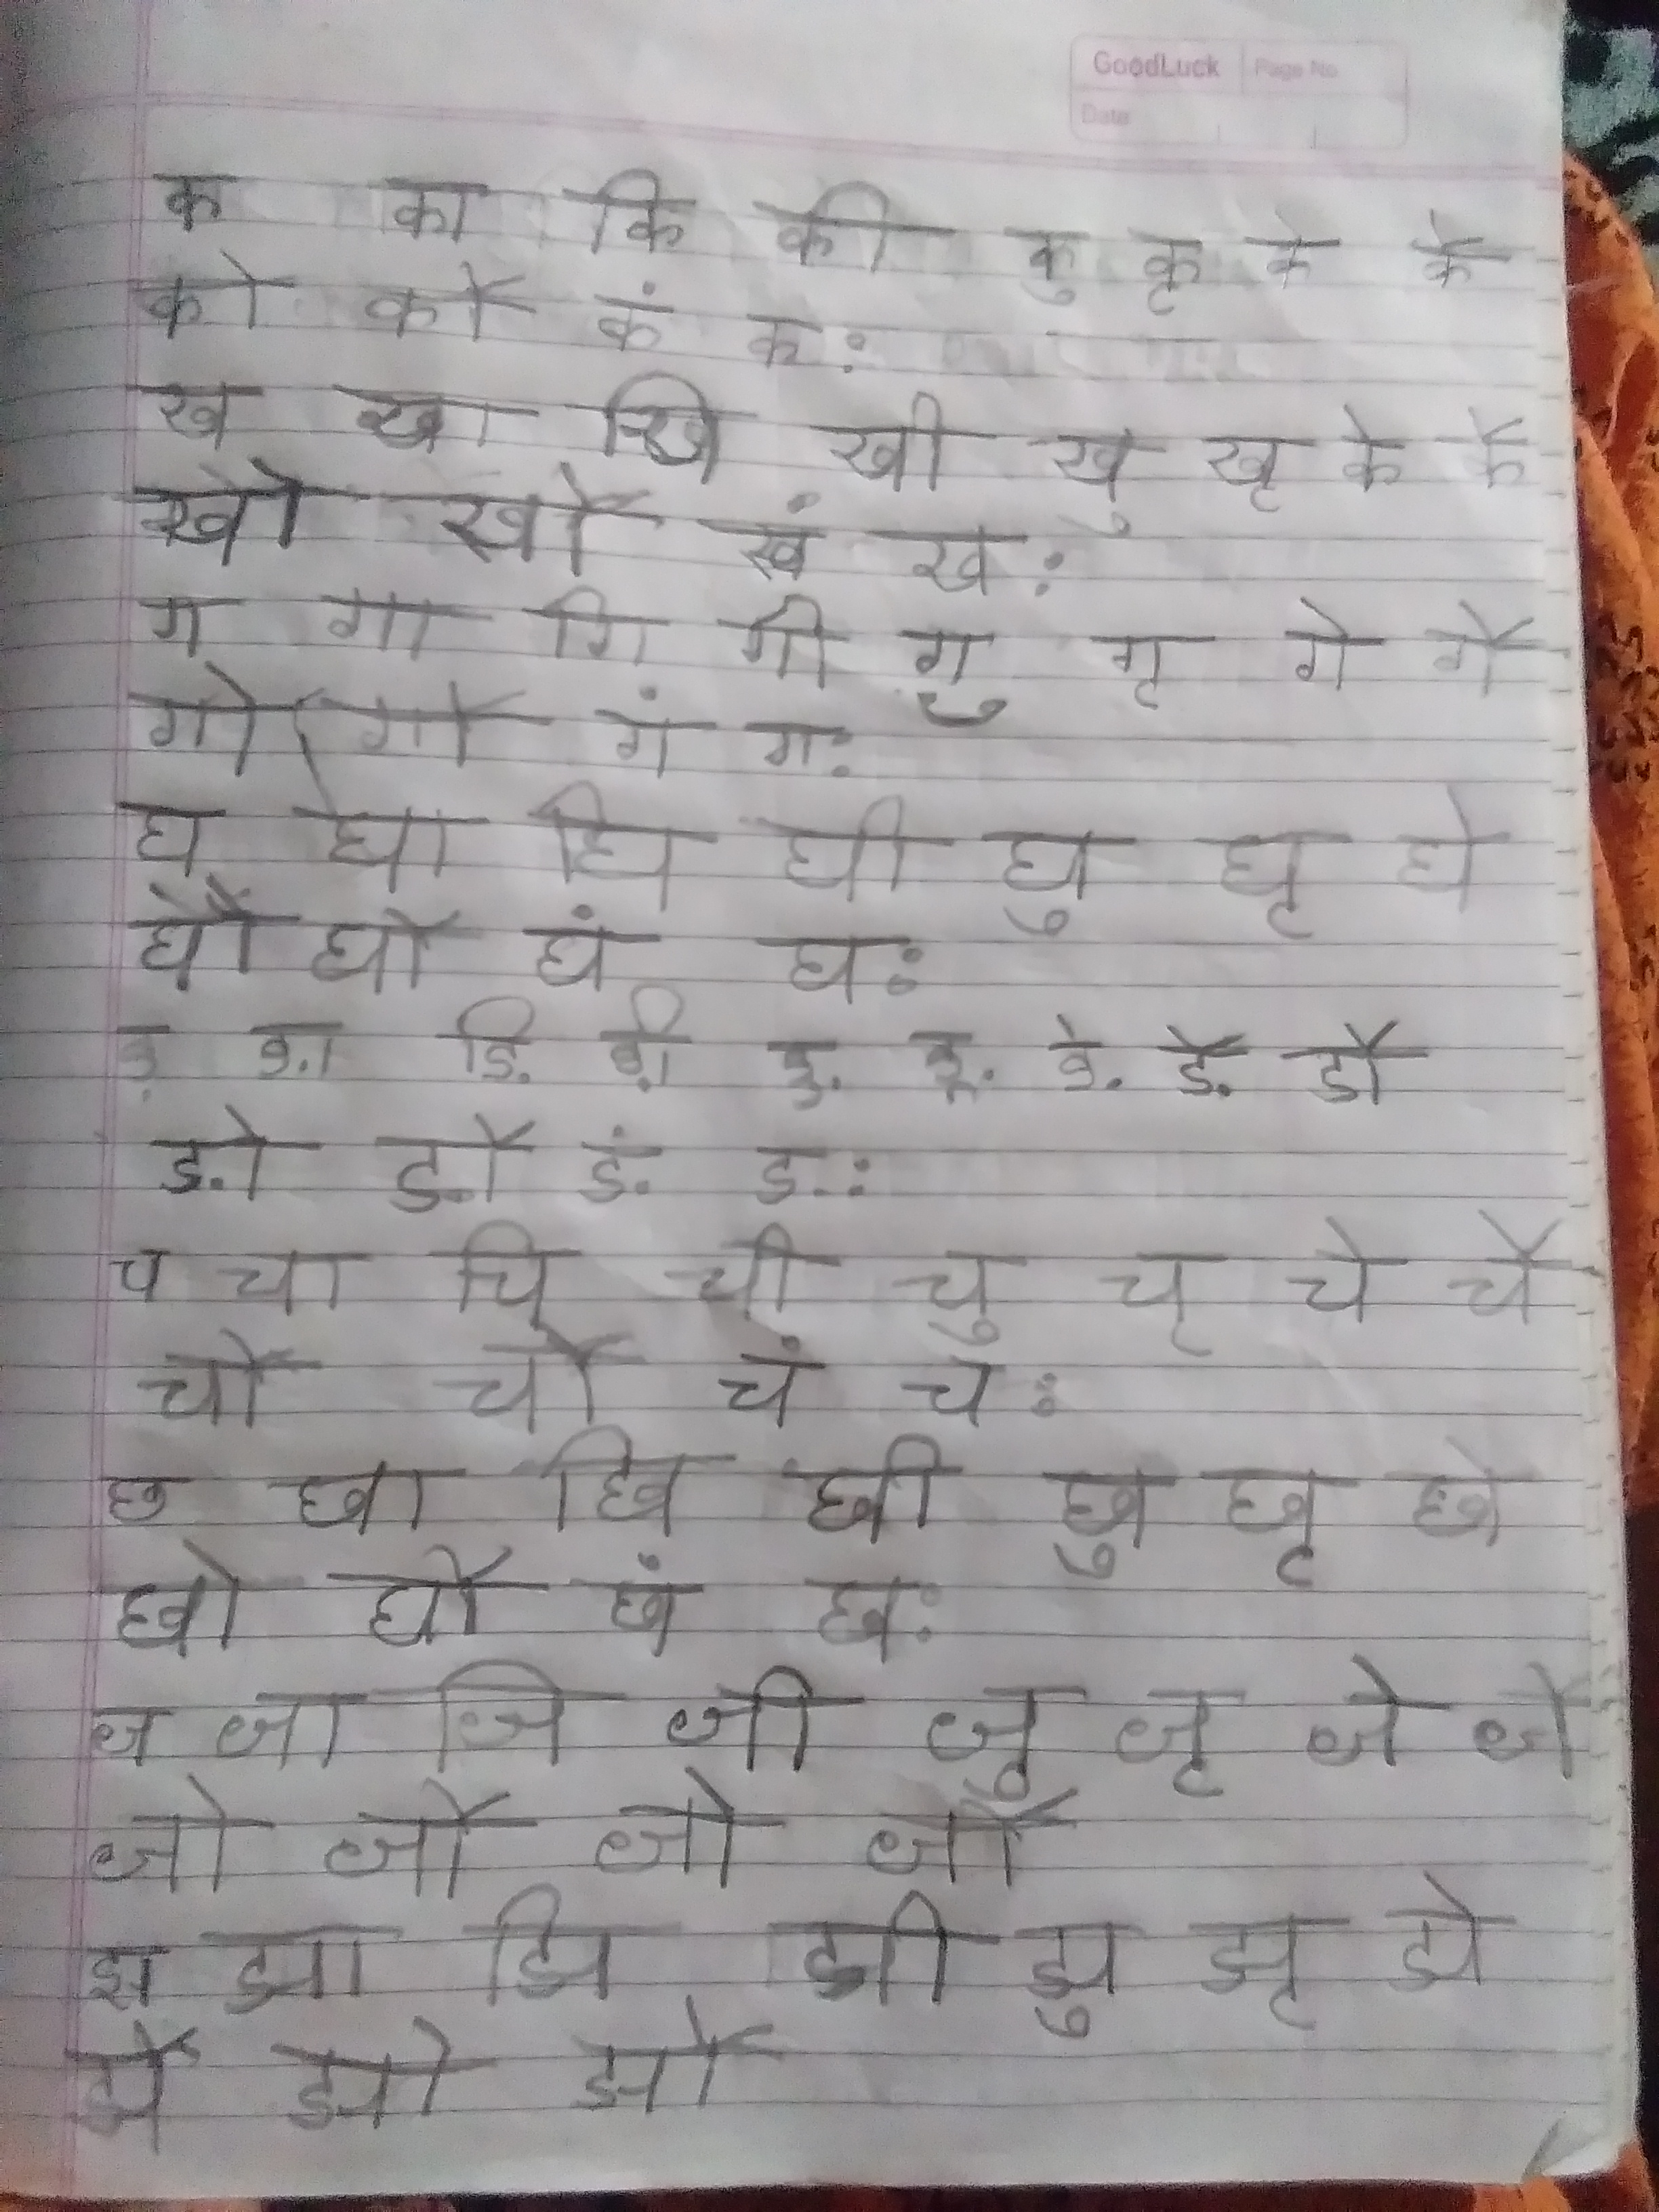 GoodLuck Page No.
Date
क का कि की कु कृ के कै
को कौ कं कः
ख खा खि खी खु खृ के कै
खो खौ खं खः
ग गा गि गी गु गृ गे गै
गो गौ गं गः
घ घा घि घी घु घृ घे
घौ घौ घं घः
ङ ङा ङि ङी ङु ङृ ङे ङै डौ
ङो ङौ ङं ङः
च चा चि ची चु चृ चे चै
चौ चौ चं चः
छ छा छि छी छु छृ छे
छो घौ छं छः
ज जा जि जी जु जृ जे जै
जो जौ जो जौ
झ झा झि झी झु झृ झे
झै झो झौ